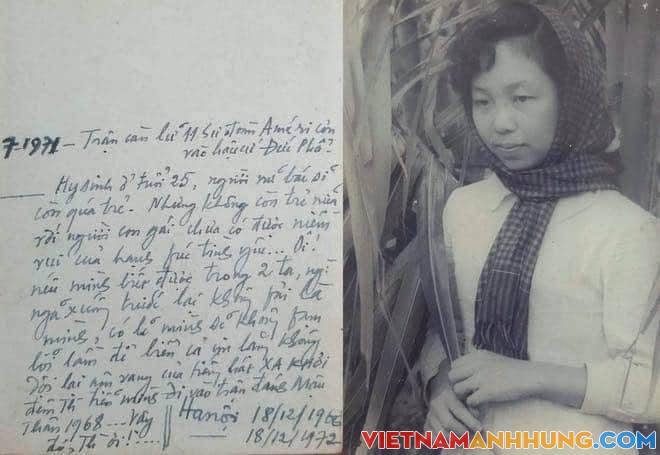 7-1971 - Trận càn lữ 11 Sư đoàn Américan
vào hậu cứ Đức Phổ.
Hy sinh ở tuổi 25, người nữ bác sĩ
còn quá trẻ. Nhưng không còn trẻ nữa
rồi người con gái chưa có được niềm
vui của hạnh fúc tình yêu... Ôi!
nếu mình biết được trong 2 ta, ng
ngã xuống trước lại không fải là
mình, có lẽ mình sẽ không fạm
lỗi lầm để biển cả yên lặng không
dội lại âm vang của tiếng hát XA KHƠI
đêm Th tiễn mình đi vào trận đánh Mậu
Thân 1968... Vậy
đó, Th ơi!....
Hanội 18/12/1966
18/12/1972
VIETNAMANHHUNG.COM